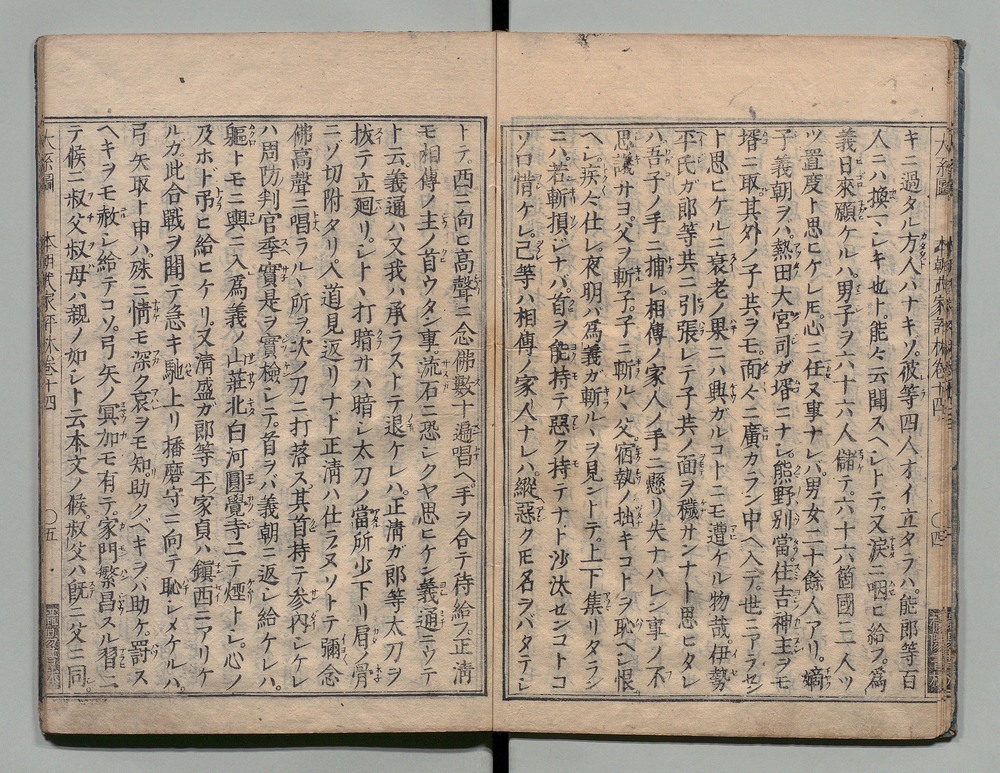 キニ過タル方人ハナキソ。彼等四人オイ立タラハ。能郎等百
人ニハ換マシキ也ト。能々云聞スヘシトテ。又涙ニ咽ヒ給フ。為
義日來願ケルハ。男子ヲ六十六人儲テ。六十六箇國ニ一人ツ
ツ置度ト思ヒケレ𪜈。心ニ任ヌ事ナレバ。男女二十餘人アリ。嫡
子義朝ヲハ。熱田大宮司ガ婿ニナシ。熊野別當住吉神主ヲモ
婿ニ取。其外ノ子共ヲモ。面々ニ廣カラン中ヘ入テ。世ニアラセン
ト思ヒケルニ。衰老ノ果ニハ興ガルコトニモ遭ケル物哉。伊勢
平氏ガ郎等共ニ引張レテ。子共ノ面ヲ穢サンナト思ヒタレ
ハ。吾子ノ手ニ捕レ。相傳ノ家人ノ手ニ懸リ失ナハレン事ノ不
思議サヨ。父ヲ斬子。子ニ斬ルヽ父。宿執ノ拙キコトヲ恥ヘシ恨
ヘシ。疾々仕レ。夜明ハ為義ガ斬ルヽヲ見ントテ。上下集リタラン
ニハ。若斬損シナハ。首ヲ能持テ惡ク持テナト沙汰センコトコ
ソ口惜ケレ。己等ハ相傳ノ家人ナレハ。縱惡ク𪜈名ヲバタテシ
大系圖 本朝武家評林卷十四 〇四
トテ。西ニ向ヒ高聲ニ念佛數十遍唱ヘ。手ヲ合テ待給フ。正淸
モ相傳ノ主ノ首ウタン事。流石ニ恐シクヤ思ヒケン。義通ニウテ
ト云。義通ハ又我ハ承ラストテ退ケレハ。正淸ガ郎等太刀ヲ
拔テ立廻リ。シトヽ打。暗サハ暗シ。太刀ノ當所少下リ。肩ノ骨
ニゾ切附タリ。入道見返リナド正淸ハ仕ラヌソトテ彌念
佛高聲ニ唱ラルヽ所ヲ。次ノ刀ニ打落ス。其首持テ參内シケレ
ハ。周防判官季實是ヲ實檢シテ。首ヲバ義朝ニ返シ給ケレハ。
軀トモニ輿ニ入。為義ノ山莊北白河圓覺寺ニテ煙トシ。心ノ
及ホド弔ヒ給ヒケリ。又淸盛ガ郎等平家貞ハ。鎭西ニアリケ
ルガ。此合戰ヲ聞テ急キ馳上リ。播磨守ニ向テ恥シメケルハ。
弓矢取ト申ハ。殊ニ情モ深ク哀ヲモ知。助クベキヲバ助ケ。罸ス
ヘキヲモ赦シ給テコソ。弓矢ノ冥加モ有テ。家門繁昌スル習ニ
テ候ニ。叔父叔母ハ親ノ如シト云本文ノ候。叔父ハ旣ニ父ニ同
大系圖 本朝武家評林卷十四 〇五